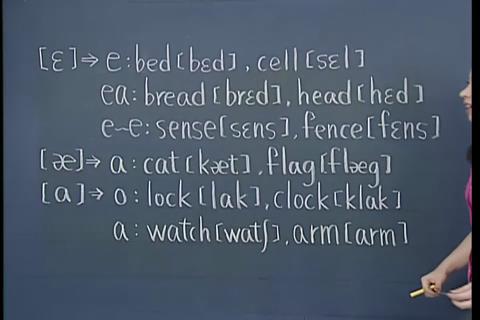 [ɛ]⇒ e: bed [bɛd], cell [sɛl]
ea: bread [brɛd], head [hɛd]
e~e: sense [sɛns], fence [fɛns]
[æ]⇒ a: cat [kæt], flag [flæg]
[a]⇒ o: lock [lak], clock [klak]
a: watch [watʃ], arm [arm]